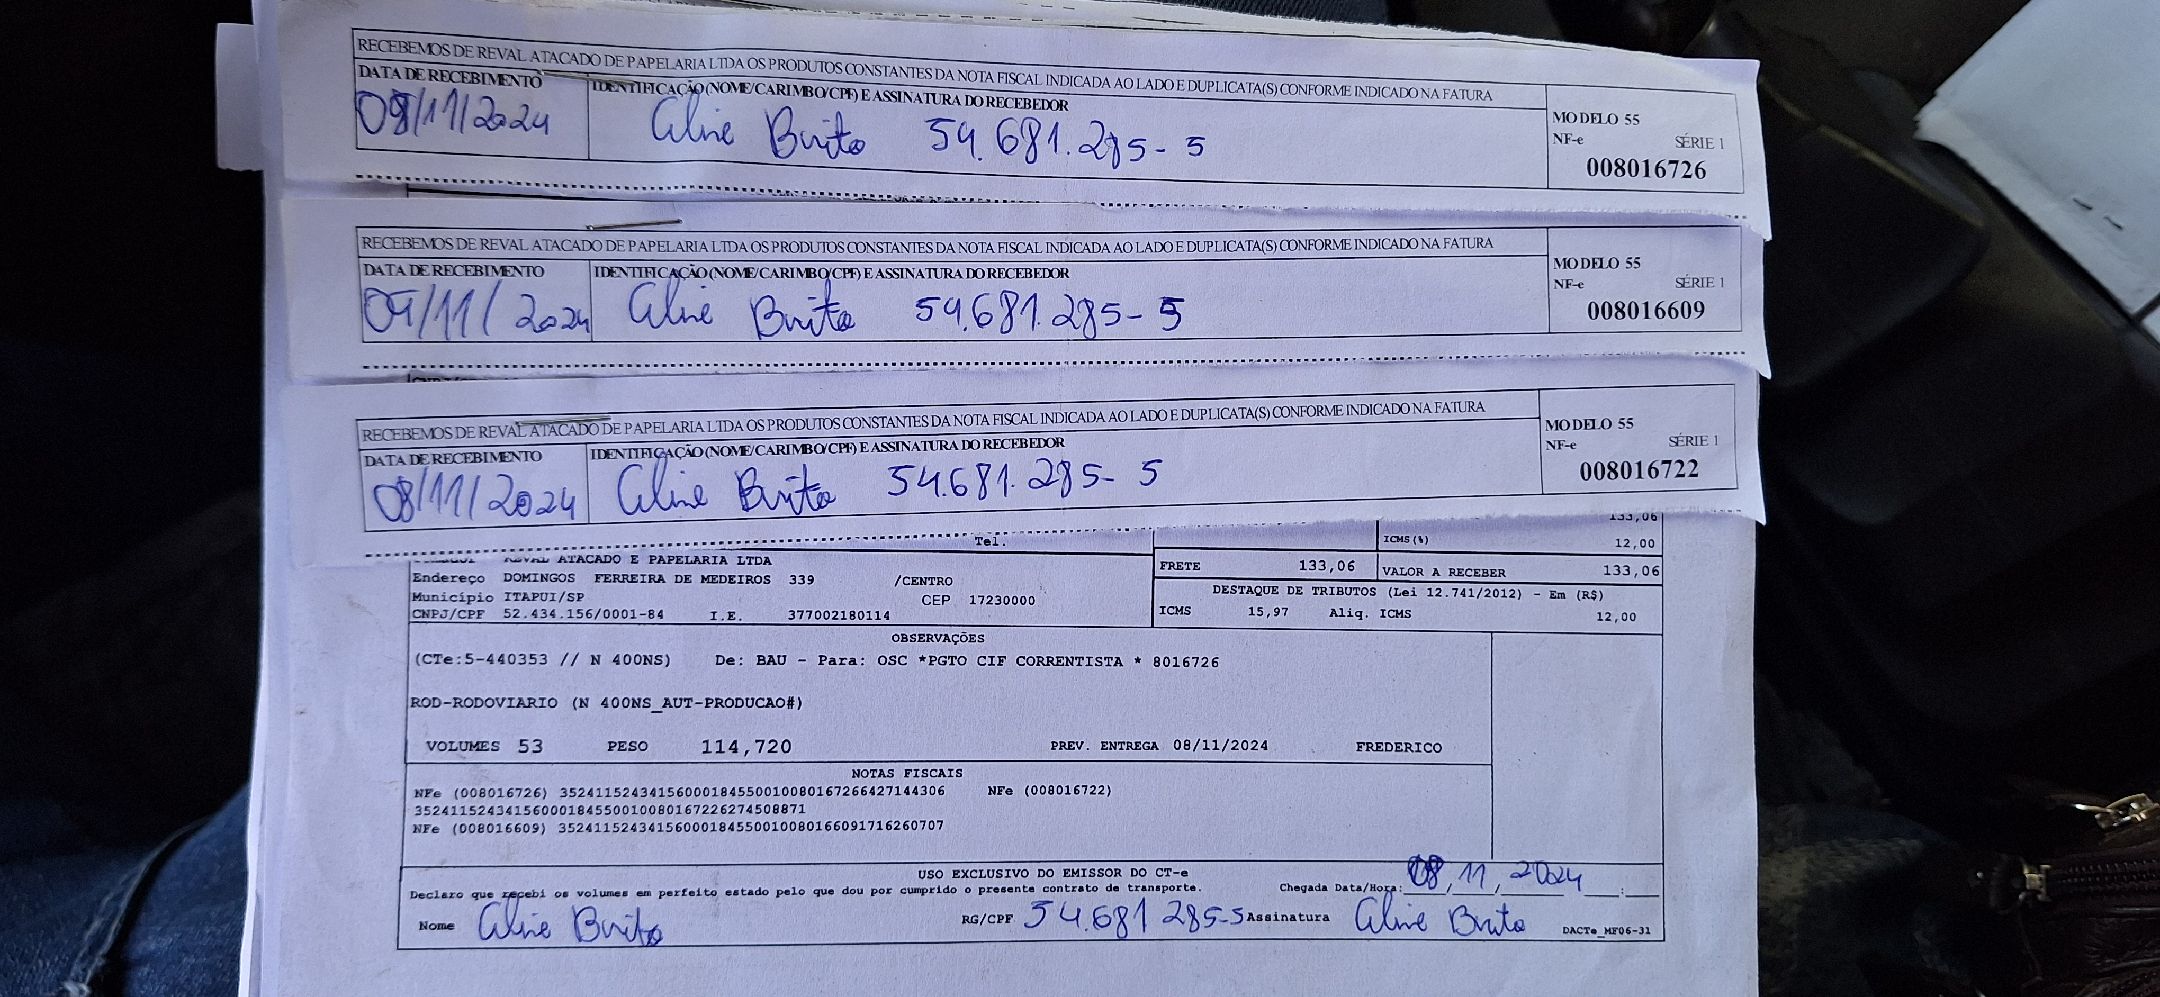 RECEBEMOS DE REVAL ATACADO DE PAPELARIA LTDA OS PRODUTOS CONSTANTES DA NOTA FISCAL INDICADA AO LADO E DUPLICATA(S) CONFORME INDICADO NA FATURA
DATA DE RECEBIMENTO IDENTIFICAÇÃO (NOME/CARIMBO/CPF) E ASSINATURA DO RECEBEDOR
08/11/2024 Aline Brito 54.681.285-5
MODELO 55
NF-e SÉRIE 1
008016726
RECEBEMOS DE REVAL ATACADO DE PAPELARIA LTDA OS PRODUTOS CONSTANTES DA NOTA FISCAL INDICADA AO LADO E DUPLICATA(S) CONFORME INDICADO NA FATURA
DATA DE RECEBIMENTO IDENTIFICAÇÃO (NOME/CARIMBO/CPF) E ASSINATURA DO RECEBEDOR
/11/2024 Aline Brito 54.681.285-5
MODELO 55
NF-e SÉRIE 1
008016609
RECEBEMOS DE REVAL ATACADO DE PAPELARIA LTDA OS PRODUTOS CONSTANTES DA NOTA FISCAL INDICADA AO LADO E DUPLICATA(S) CONFORME INDICADO NA FATURA
DATA DE RECEBIMENTO IDENTIFICAÇÃO (NOME/CARIMBO/CPF) E ASSINATURA DO RECEBEDOR
08/11/2024 Aline Brito 54.681.285-5
MODELO 55
NF-e SÉRIE 1
008016722
133,06
Tel. ICMS(%) 12,00
REVAL ATACADO E PAPELARIA LTDA
FRETE 133,06 VALOR A RECEBER 133,06
Endereço DOMINGOS FERREIRA DE MEDEIROS 339 /CENTRO
DESTAQUE DE TRIBUTOS (Lei 12.741/2012) - Em (R$)
Município ITAPUI/SP CEP 17230000
CNPJ/CPF 52.434.156/0001-84 I.E. 377002180114
ICMS 15,97 Aliq. ICMS 12,00
OBSERVAÇÕES
(CTe:5-440353 // N 400NS) De: BAU - Para: OSC *PGTO CIF CORRENTISTA * 8016726
ROD-RODOVIARIO (N 400NS_AUT-PRODUCAO#)
VOLUMES 53 PESO 114,720 PREV. ENTREGA 08/11/2024 FREDERICO
NOTAS FISCAIS
NFe (008016726) 35241152434156000184550010080167266427144306 NFe (008016722)
35241152434156000184550010080167226274508871
NFe (008016609) 35241152434156000184550010080166091716260707
USO EXCLUSIVO DO EMISSOR DO CT-e
Declaro que recebi os volumes em perfeito estado pelo que dou por cumprido o presente contrato de transporte. Chegada Data/Hora: 08/11/2024 :
Nome Aline Brito RG/CPF 54.681 285-5 Assinatura Aline Brito DACTe_MF06-31